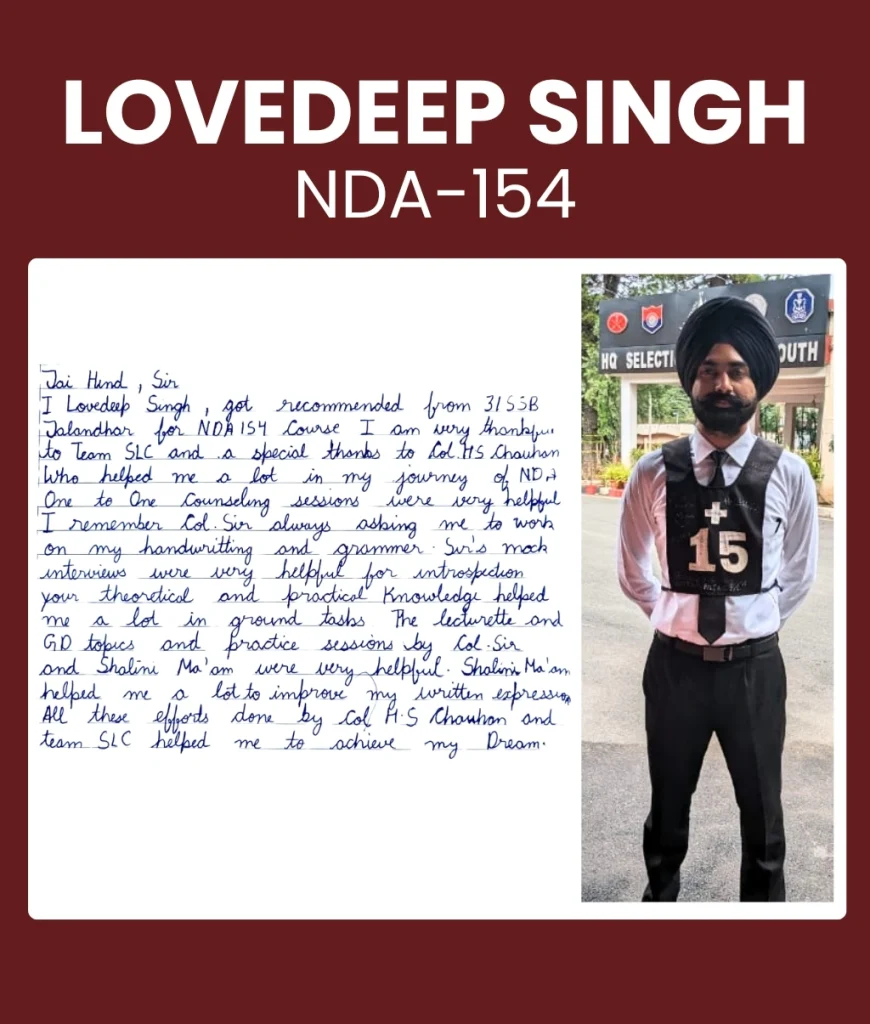 LOVEDEEP SINGH
NDA-154
Jai Hind, Sir
I Lovedeep Singh, got recommended from 31SSB
Jalandhar for NDA154 Course I am very thankful
to Team SLC and a special thanks to Col. HS Chauhan
Who helped me a lot in my journey of NDA
One to One Counseling sessions were very helpful
I remember Col. Sir always asking me to work
on my handwritting and grammer. Sir's mock
interviews were very helpful for introspection
your theoretical and practical Knowledge helped
me a lot in ground tasks The lecturette and
GD topics and practice sessions by Col. Sir
and Shalini Ma'am were very helpful. Shalini Ma'am
helped me a lot to improve my written expression
All these efforts done by Col H.S Chauhan and
team SLC helped me to achieve my Dream.
HQ SELECTI
OUTH
15